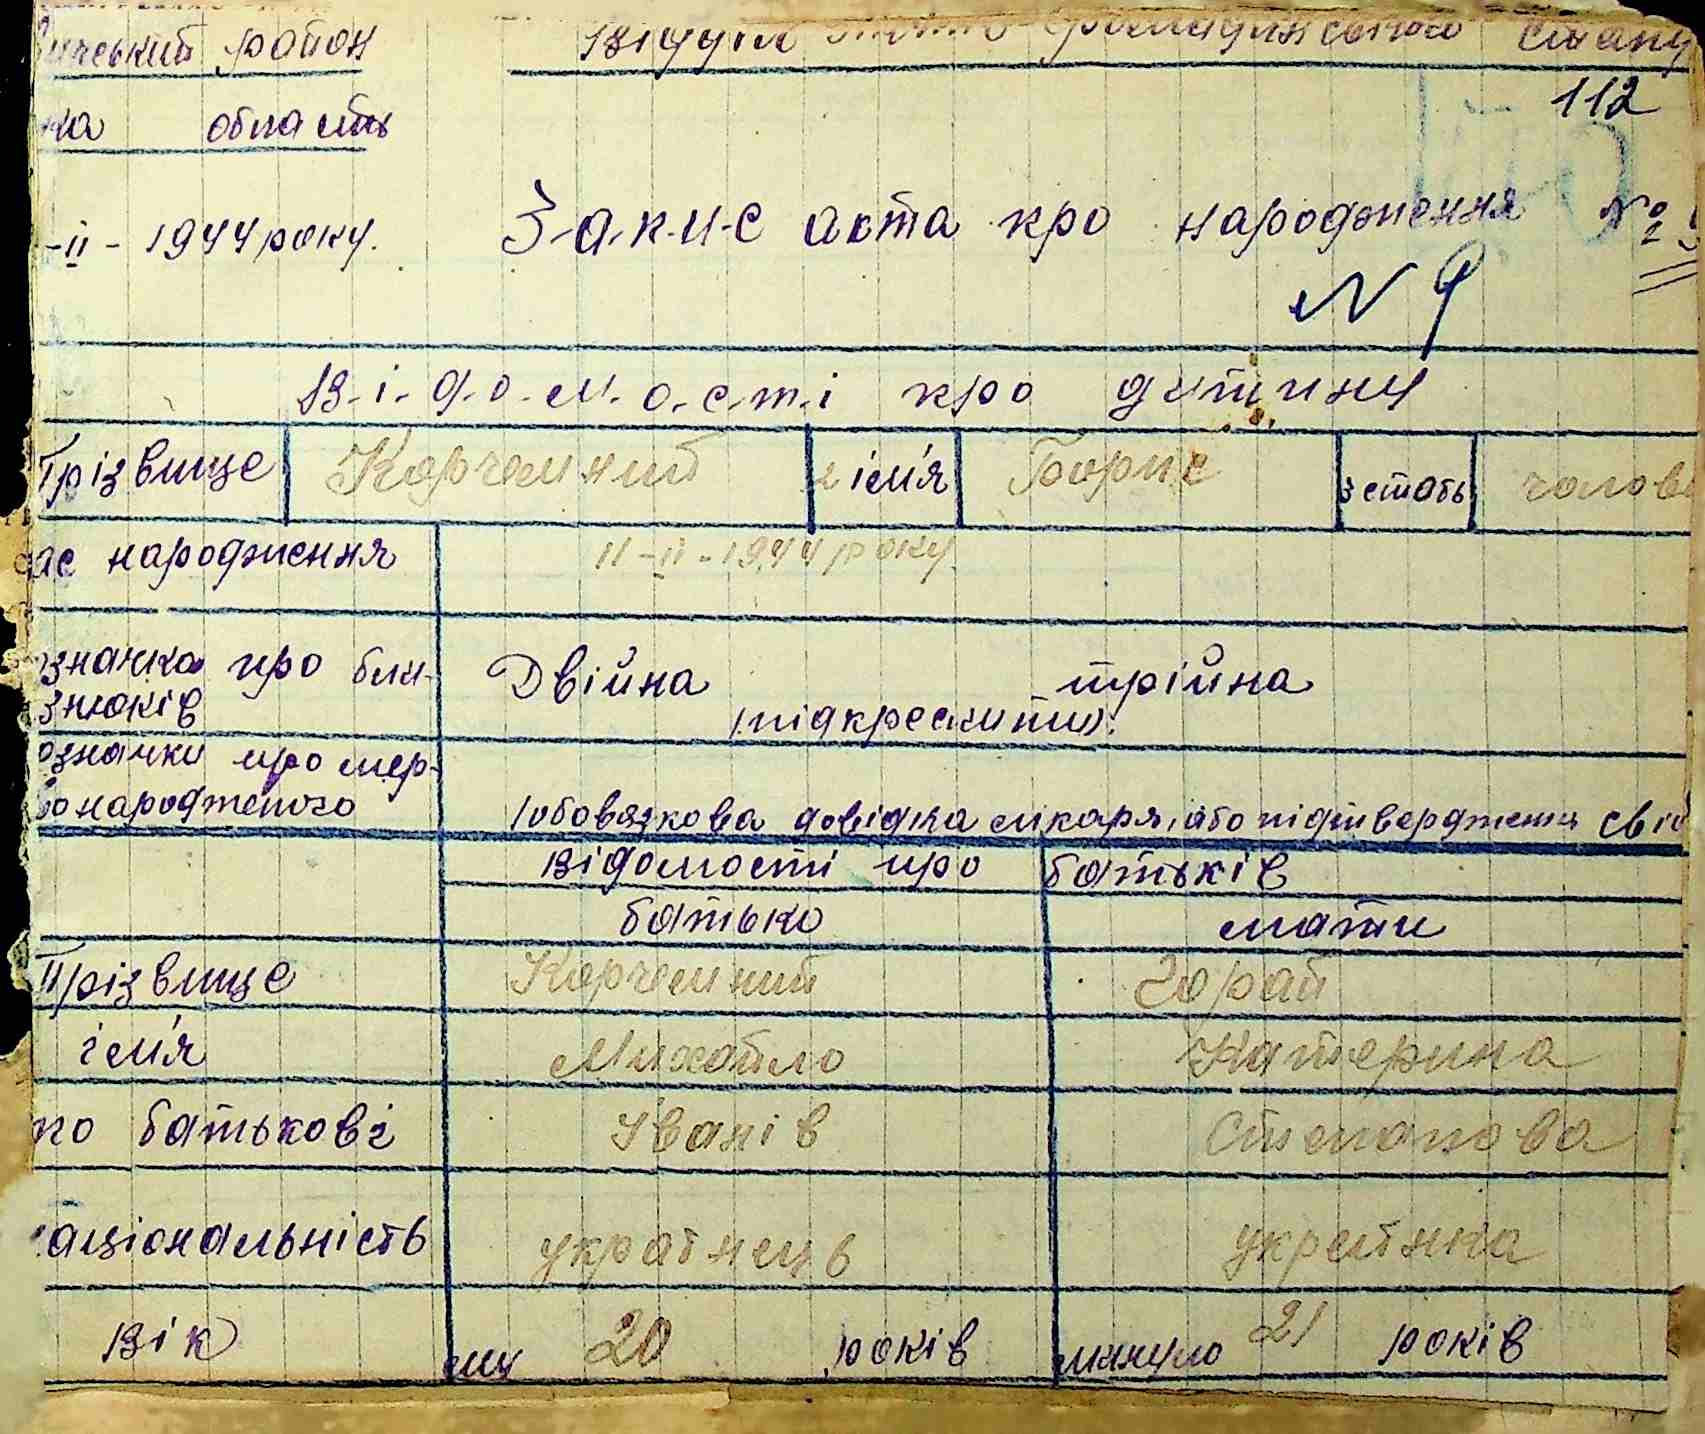 район Відділ громадянського стану
112
ка область
-II- 1944 року. З-а-п-и-с акта про народження №
N 9
В-і-д-о-м-о-с-т-і про дитину
Прізвище Корчемний 2 ім'я Борис 3 стать чолові
ас народження 11-II-1944 року.
означка про бли-
знюків Двійна трійна
(підкреслити).
означки про мер-
во народженого (обовязкова довідка лікаря, або підтвердження свід
Відомості про батьків
батько мати
Прізвище Корчемний Зорай
ім'я Михайло Катерина
по батькові Іванів Степанова
аціональність українець українка
Вік му 20 років минуло 21 років